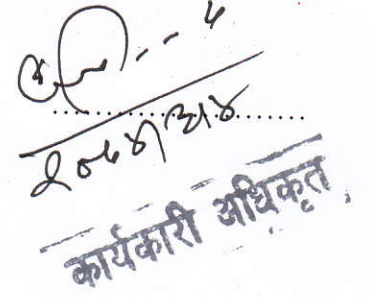 २०७४।३।४
कार्यकारी अधिकृत